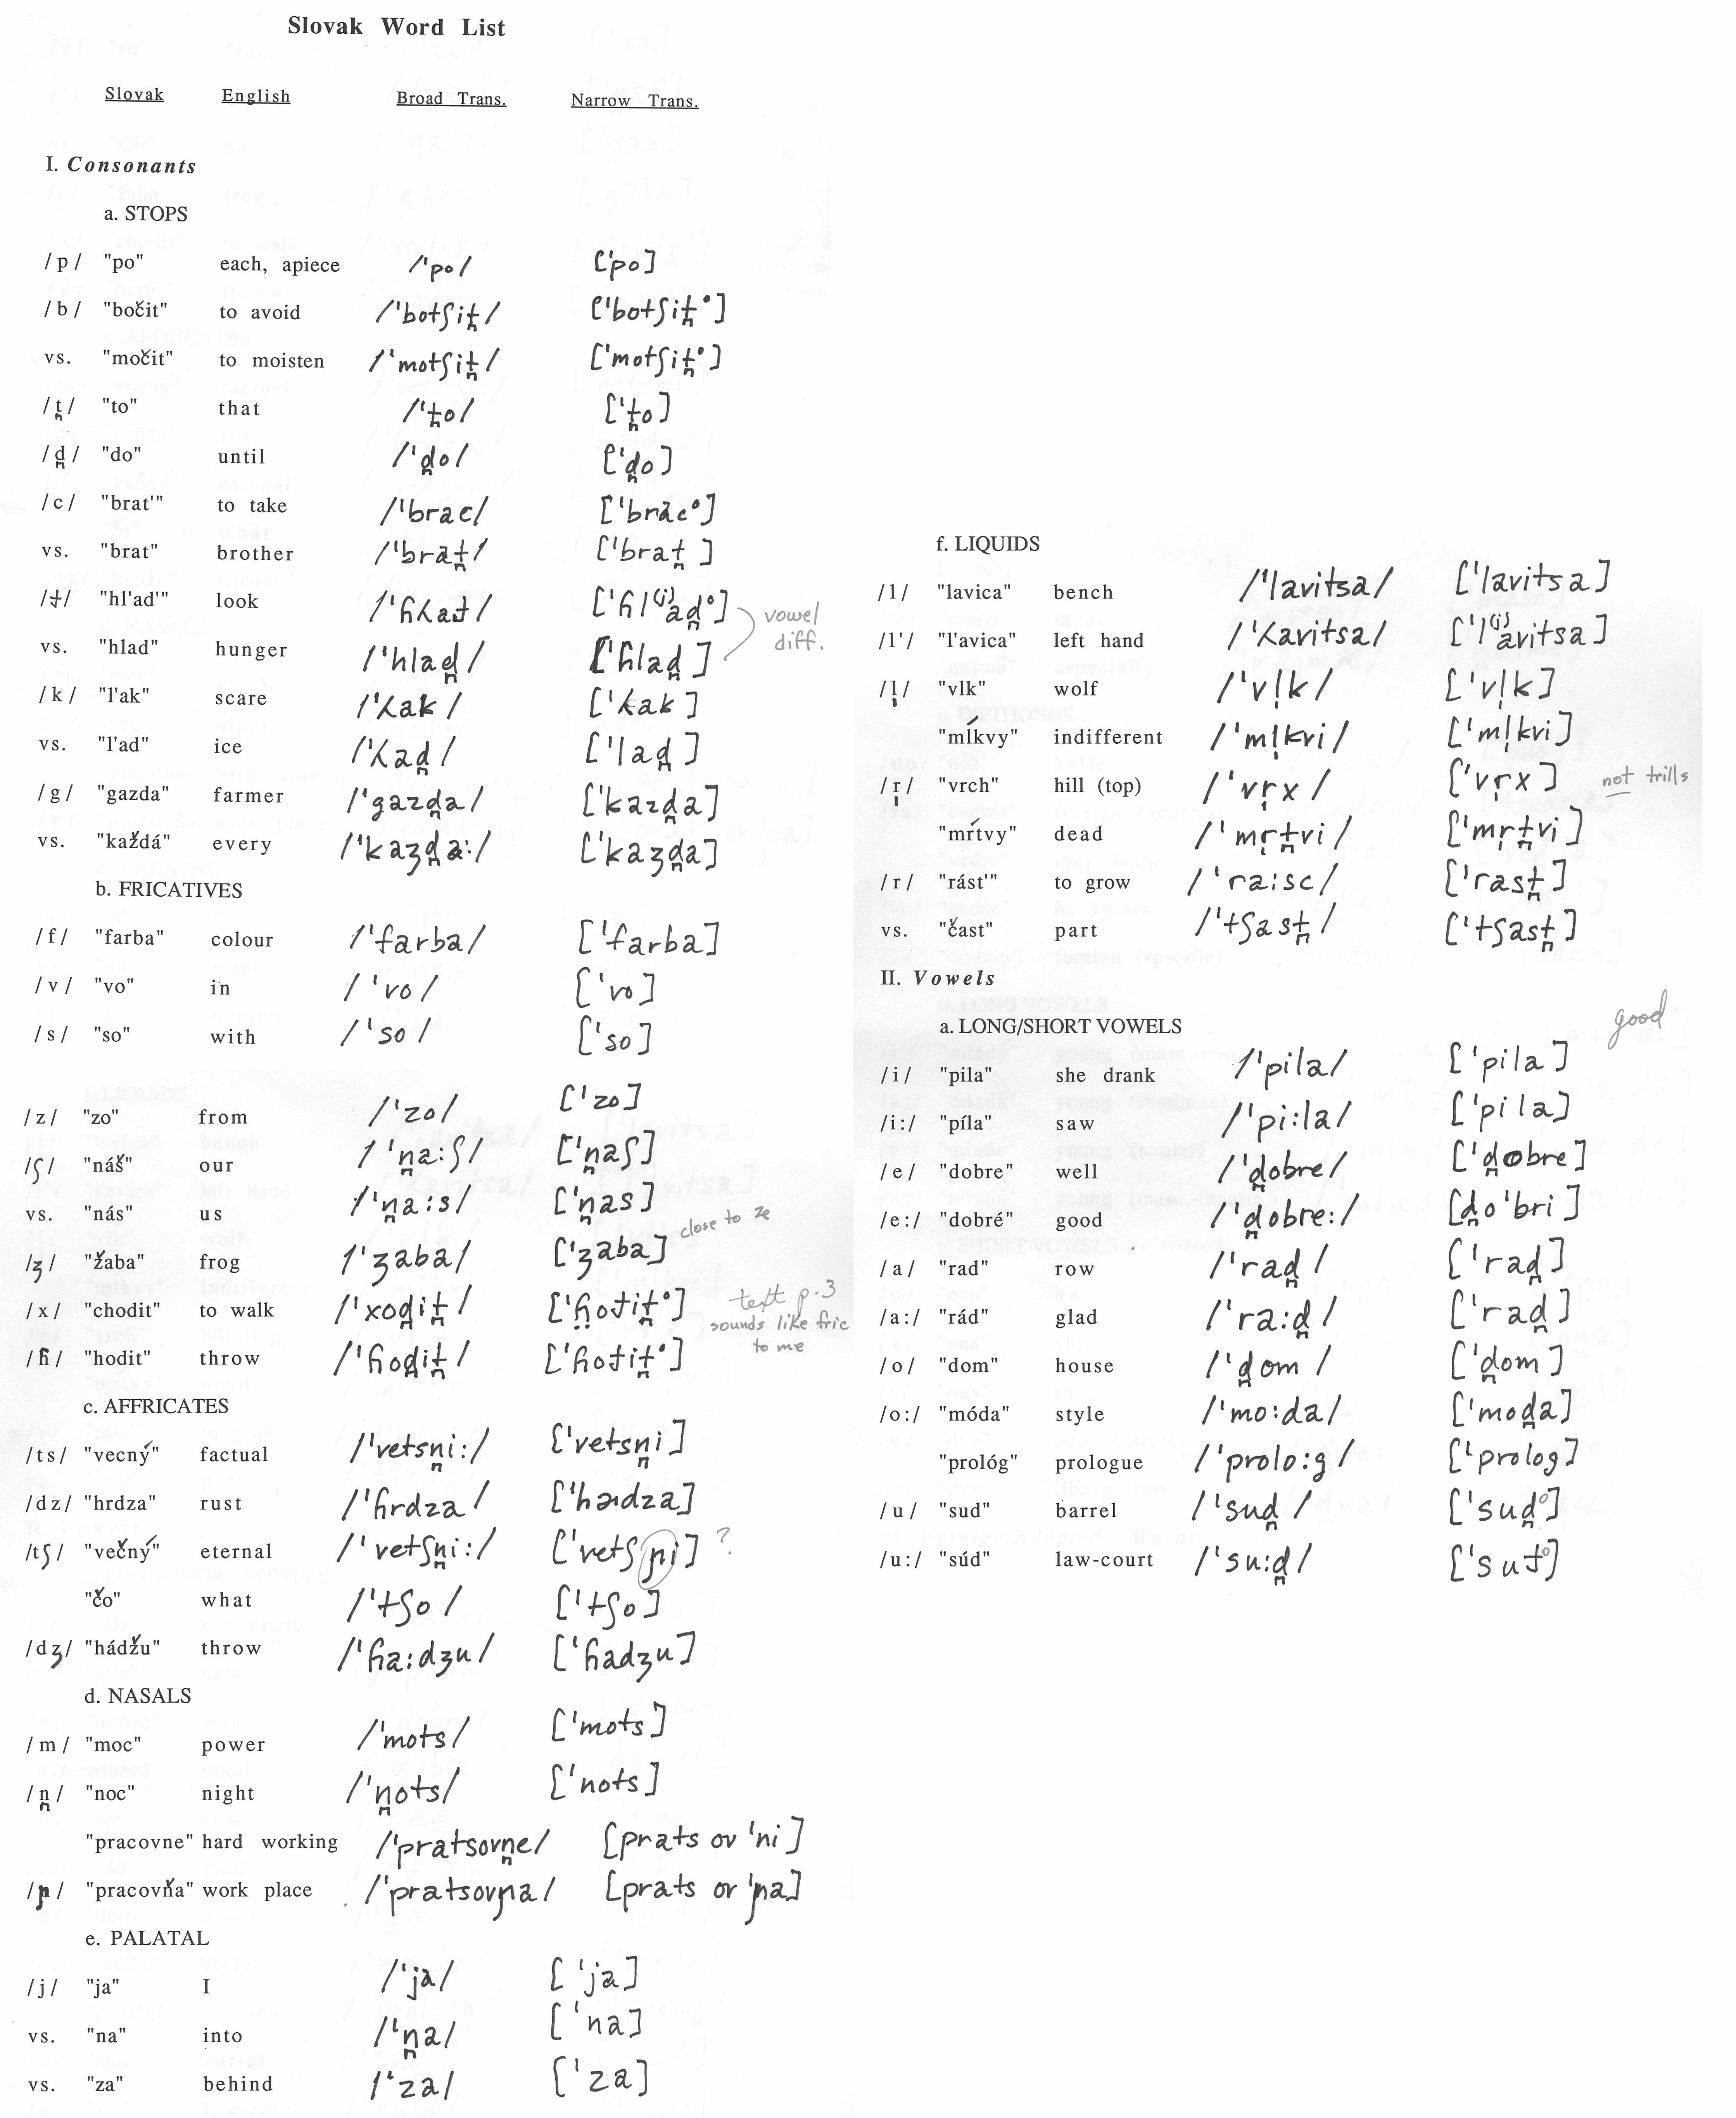 Slovak Word List
Slovak English Broad Trans. Narrow Trans.
I. Consonants
a. STOPS
/p/ "po" each, apiece /ˈpo/ [ˈpo]
/b/ "bočit" to avoid /ˈbotʃit̪/ [ˈbotʃit̪°]
vs. "močit" to moisten /ˈmotʃit̪/ [ˈmotʃit̪°]
/t̪/ "to" that /ˈt̪o/ [ˈt̪o]
/d̪/ "do" until /ˈd̪o/ [ˈd̪o]
/c/ "brat'" to take /ˈbrac/ [ˈbrac°]
vs. "brat" brother /ˈbrat̪/ [ˈbrat̪]
/ɟ/ "hl'ad'" look /ˈɦʎaɟ/ [ˈɦl⁽ʲ⁾ad̪°] vowel
vs. "hlad" hunger /ˈhlad̪/ [ˈɦlad̪] diff.
/k/ "l'ak" scare /ˈʎak/ [ˈʎak]
vs. "l'ad" ice /ˈʎad̪/ [ˈlad̪]
/g/ "gazda" farmer /ˈgazd̪a/ [ˈkazd̪a]
vs. "každá" every /ˈkaʒd̪a:/ [ˈkaʒd̪a]
b. FRICATIVES
/f/ "farba" colour /ˈfarba/ [ˈfarba]
/v/ "vo" in /ˈvo/ [ˈvo]
/s/ "so" with /ˈso/ [ˈso]
/z/ "zo" from /ˈzo/ [ˈzo]
/ʃ/ "náš" our /ˈn̪a:ʃ/ [ˈn̪aʃ]
vs. "nás" us /ˈn̪a:s/ [ˈn̪as]
/ʒ/ "žaba" frog /ˈʒaba/ [ˈʒaba] close to ze
/x/ "chodit" to walk /ˈxod̪it̪/ [ˈɦ̤oɟit̪°] text p.3
sounds like fric
to me
/ɦ/ "hodit" throw /ˈɦod̪it̪/ [ˈɦoɟit̪°]
c. AFFRICATES
/ts/ "vecný" factual /ˈvetsn̪i:/ [ˈvetsn̪i]
/dz/ "hrdza" rust /ˈɦrdza/ [ˈhəɹdza]
/tʃ/ "večný" eternal /ˈvetʃn̪i:/ [ˈvetʃɲi] ?
"čo" what /ˈtʃo/ [ˈtʃo]
/dʒ/ "hádžu" throw /ˈɦa:dʒu/ [ˈɦadʒu]
d. NASALS
/m/ "moc" power /ˈmots/ [ˈmots]
/n̪/ "noc" night /ˈn̪ots/ [ˈnots]
"pracovne" hard working /ˈpratsovn̪e/ [prats ov ˈni]
/ɲ/ "pracovňa" work place /ˈpratsovɲa/ [prats ov ˈɲa]
e. PALATAL
/j/ "ja" I /ˈja/ [ˈja]
vs. "na" into /ˈn̪a/ [ˈna]
vs. "za" behind /ˈza/ [ˈza]
f. LIQUIDS
/l/ "lavica" bench /ˈlavitsa/ [ˈlavitsa]
/l'/ "l'avica" left hand /ˈʎavitsa/ [ˈl⁽ʲ⁾avitsa]
/l̩/ "vlk" wolf /ˈvl̩k/ [ˈvl̩k]
"mĺkvy" indifferent /ˈml̩kvi/ [ˈml̩kvi]
/r̩/ "vrch" hill (top) /ˈvr̩x/ [ˈvr̩x] not trills
"mŕtvy" dead /ˈmr̩t̪vi/ [ˈmr̩t̪vi]
/r/ "rást'" to grow /ˈra:sc/ [ˈrast̪]
vs. "čast" part /ˈtʃast̪/ [ˈtʃast̪]
II. Vowels
a. LONG/SHORT VOWELS good
/i/ "pila" she drank /ˈpila/ [ˈpila]
/i:/ "píla" saw /ˈpi:la/ [ˈpila]
/e/ "dobre" well /ˈd̪obre/ [ˈd̪obre]
/e:/ "dobré" good /ˈd̪obre:/ [d̪oˈbri]
/a/ "rad" row /ˈrad̪/ [ˈrad̪]
/a:/ "rád" glad /ˈra:d̪/ [ˈrad̪]
/o/ "dom" house /ˈd̪om/ [ˈd̪om]
/o:/ "móda" style /ˈmo:da/ [ˈmod̪a]
"prológ" prologue /ˈprolo:g/ [ˈprolog]
/u/ "sud" barrel /ˈsud̪/ [ˈsud̪°]
/u:/ "súd" law-court /ˈsu:d̪/ [ˈsuɟ°]